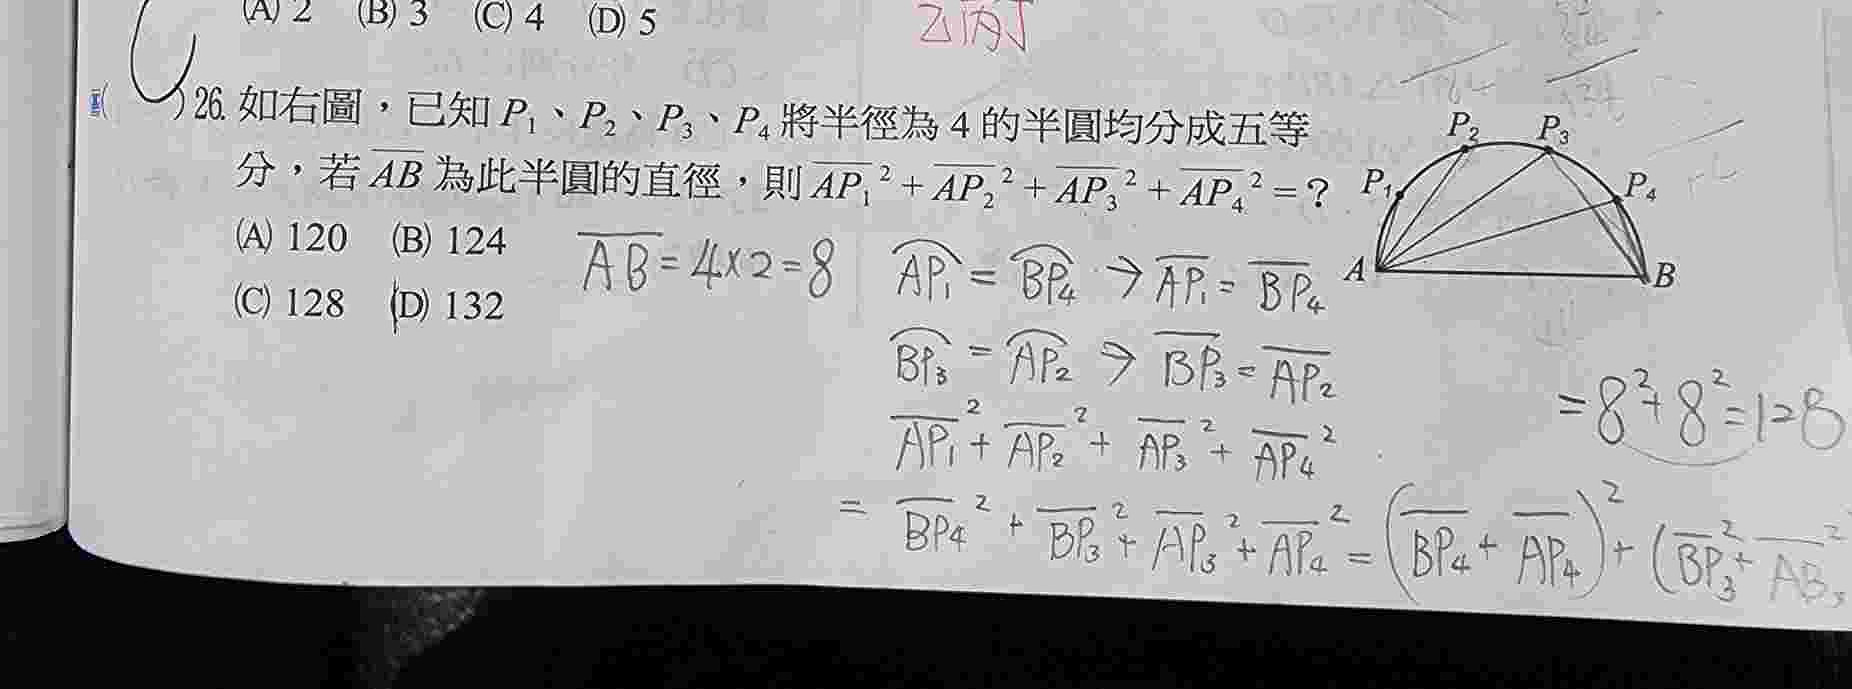 (A) 2 (B) 3 (C) 4 (D) 5
乙丙丁
26. 如右圖，已知 P₁、P₂、P₃、P₄ 將半徑為 4 的半圓均分成五等
分，若 \overline{AB} 為此半圓的直徑，則 \overline{AP₁}² + \overline{AP₂}² + \overline{AP₃}² + \overline{AP₄}² = ？
(A) 120 (B) 124
(C) 128 (D) 132
P₁ P₂ P₃ P₄ A B
\overline{AB} = 4×2 = 8
⌒AP₁ = ⌒BP₄ → \overline{AP₁} = \overline{BP₄}
⌒BP₃ = ⌒AP₂ → \overline{BP₃} = \overline{AP₂}
\overline{AP₁}² + \overline{AP₂}² + \overline{AP₃}² + \overline{AP₄}²
= \overline{BP₄}² + \overline{BP₃}² + \overline{AP₃}² + \overline{AP₄}² = (\overline{BP₄} + \overline{AP₄})² + (\overline{BP₃}² + \overline{AB₃}²
= 8² + 8² = 128